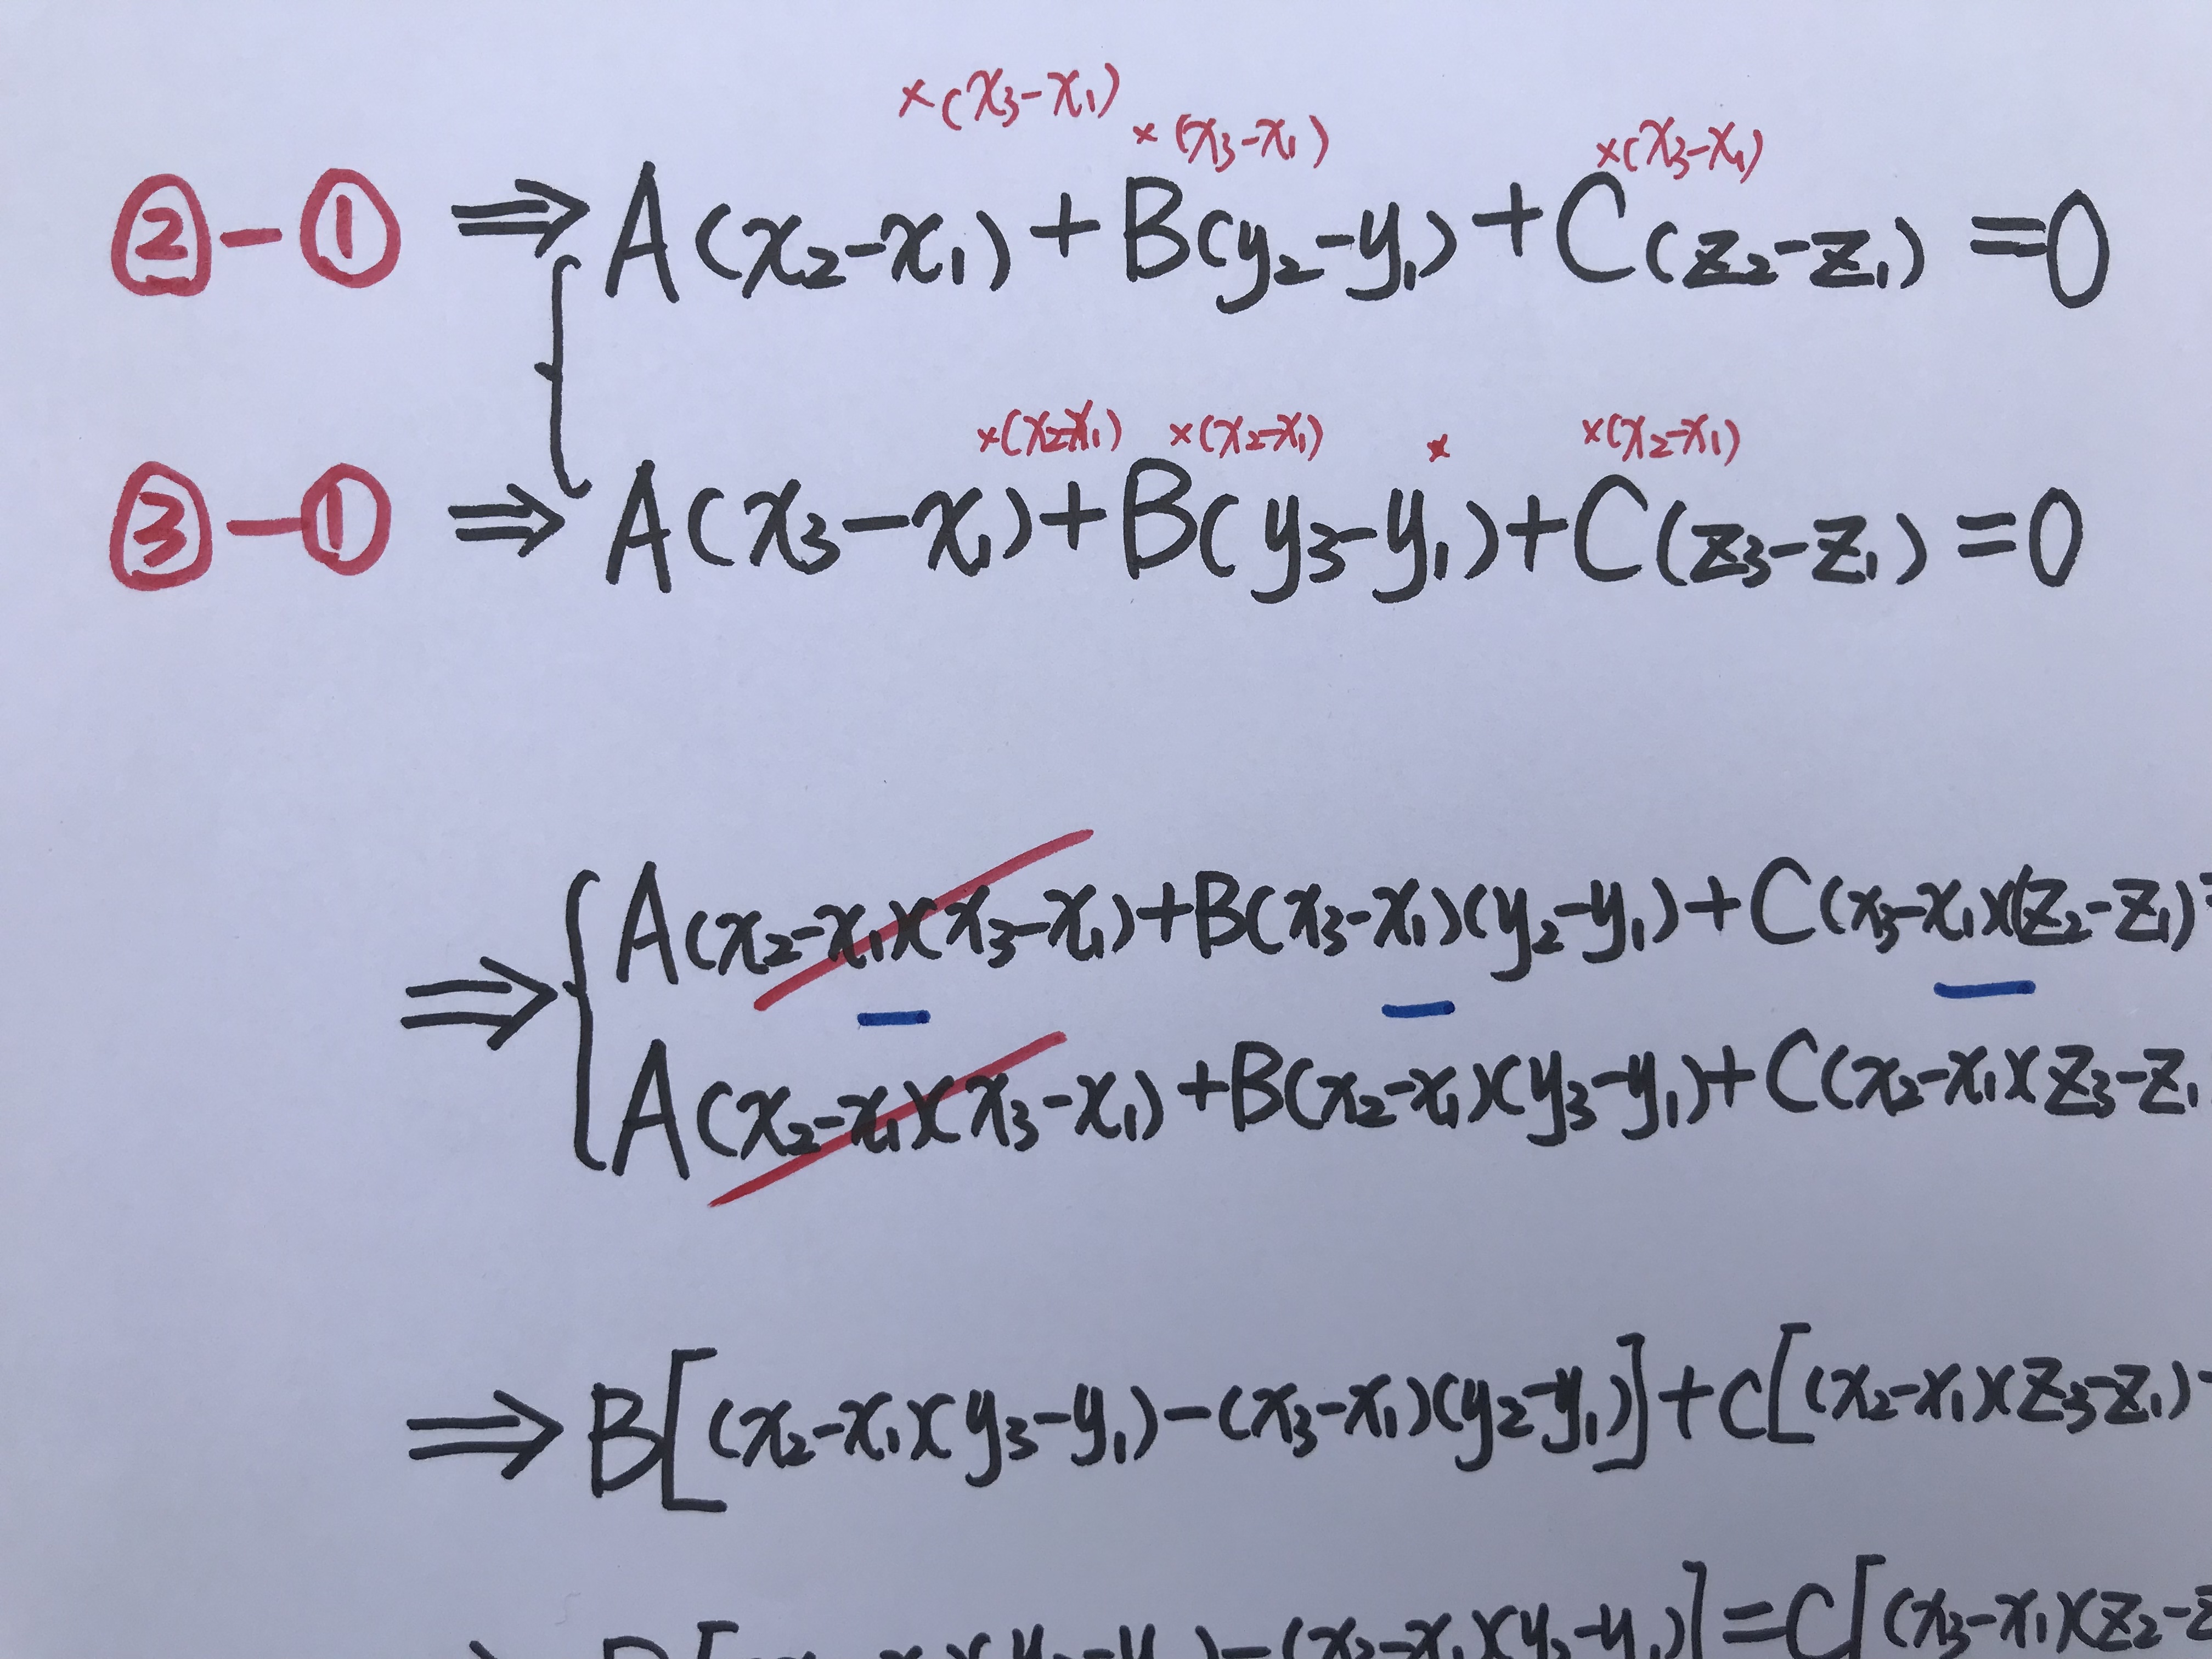 ×(x₃-x₁) ×(x₃-x₁) ×(x₃-x₁)
②-① ⇒ A(x₂-x₁)+B(y₂-y₁)+C(z₂-z₁)=0
×(x₂-x₁) ×(x₂-x₁) × ×(x₂-x₁)
③-① ⇒ A(x₃-x₁)+B(y₃-y₁)+C(z₃-z₁)=0
⇒ { A(x₂-x₁)(x₃-x₁)+B(x₃-x₁)(y₂-y₁)+C(x₃-x₁)(z₂-z₁)=
A(x₂-x₁)(x₃-x₁)+B(x₂-x₁)(y₃-y₁)+C(x₂-x₁)(z₃-z₁
⇒ B[(x₂-x₁)(y₃-y₁)-(x₃-x₁)(y₂-y₁)]+C[(x₂-x₁)(z₃-z₁)-
]=C[(x₃-x₁)(z₂-z